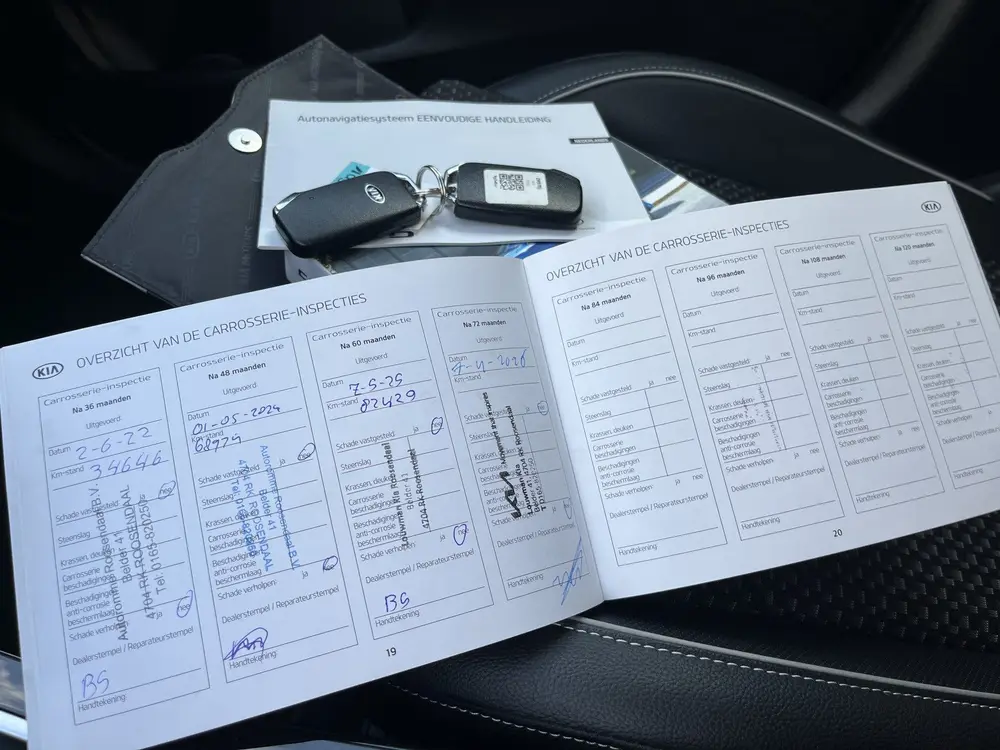 Autonavigatiesysteem EENVOUDIGE HANDLEIDING
NEDERLANDS
KIA
KIA
OVERZICHT VAN DE CARROSSERIE-INSPECTIES
Carrosserie-inspectie
Na 36 maanden
Uitgevoerd
Datum 2-6-22
Km-stand 34646
Schade vastgesteld ja nee
Krassen, deuken
Carrosserie
beschadigingen
Beschadigingen
anti-corrosie
beschermlaag
Schade verholpen: ja nee
Dealerstempel / Reparateursstempel
Autoromme Roosendaal B.V.
Belder 41
4704 RK ROOSENDAAL
BS
Handtekening:
Carrosserie-inspectie
Na 48 maanden
Uitgevoerd
Datum 01-05-2024
Km-stand 68774
Schade vastgesteld ja nee
Steenslag
Krassen, deuken
Carrosserie
beschadigingen
Beschadigingen
anti-corrosie
beschermlaag
Schade verholpen: ja nee
Dealerstempel / Reparateursstempel
Autoromme Roosendaal B.V.
Belder 41
4704 RK ROOSENDAAL
Handtekening:
Carrosserie-inspectie
Na 60 maanden
Uitgevoerd
Datum 7-5-25
Km-stand 82429
Schade vastgesteld ja nee
Steenslag
Krassen, deuken
Carrosserie
beschadigingen
Beschadigingen
anti-corrosie
beschermlaag
Schade verholpen: ja nee
Dealerstempel / Reparateursstempel
Louwman Kia Roosendaal
Belder 41
4704 RK Roosendaal
BS
Handtekening:
Carrosserie-inspectie
Na 72 maanden
Uitgevoerd
Datum
Km-stand
Schade vastgesteld ja
Steenslag
Krassen, deuken
Carrosserie
beschadigingen
Beschadigingen
anti-corrosie
beschermlaag
Schade verholpen: ja
Dealerstempel / Reparateursstempel
KIA Movement that inspires
Louwman Kia
Handtekening:
19
KIA
OVERZICHT VAN DE CARROSSERIE-INSPECTIES
Carrosserie-inspectie
Na 84 maanden
Uitgevoerd
Datum
Km-stand
Schade vastgesteld ja nee
Steenslag
Krassen, deuken
Carrosserie
beschadigingen
Beschadigingen
anti-corrosie
beschermlaag
Schade verholpen: ja nee
Dealerstempel / Reparateursstempel
Handtekening:
Carrosserie-inspectie
Na 96 maanden
Uitgevoerd
Datum
Km-stand
Schade vastgesteld ja nee
Steenslag
Krassen, deuken
Carrosserie
beschadigingen
Beschadigingen
anti-corrosie
beschermlaag
Schade verholpen: ja nee
Dealerstempel / Reparateursstempel
Handtekening:
Carrosserie-inspectie
Na 108 maanden
Uitgevoerd
Datum
Km-stand
Schade vastgesteld ja nee
Steenslag
Krassen, deuken
Carrosserie
beschadigingen
Beschadigingen
anti-corrosie
beschermlaag
Schade verholpen: ja nee
Dealerstempel / Reparateursstempel
Handtekening:
Carrosserie-inspectie
Na 120 maanden
Uitgevoerd
Datum
Km-stand
Schade vastgesteld ja nee
Steenslag
Krassen, deuken
Carrosserie
beschadigingen
Beschadigingen
anti-corrosie
beschermlaag
Schade verholpen: ja nee
Handtekening:
20